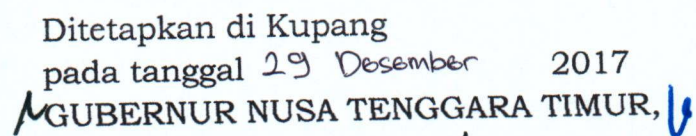 Ditetapkan di Kupang
pada tanggal 29 Desember 2017
GUBERNUR NUSA TENGGARA TIMUR,